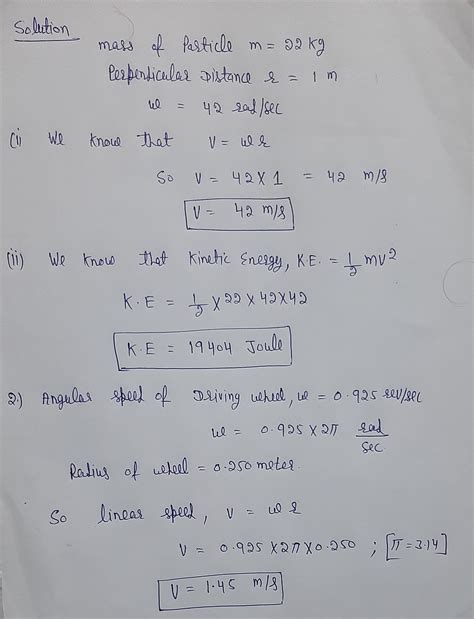 Solution
mass of Particle m = 22 kg
Perpendicular Distance r = 1 m
ω = 42 rad/sec
(i) We know that V = ωr
So V = 42 × 1 = 42 m/s
V = 42 m/s
(ii) We know that Kinetic Energy, K.E. = 1/2 mv²
K.E = 1/2 × 22 × 42 × 42
K.E = 19404 Joule
2.) Angular speed of Driving wheel, ω = 0.925 rev/sec
ω = 0.925 × 2π rad/sec
Radius of wheel = 0.250 meter.
So linear speed, V = ωr
V = 0.925 × 2π × 0.250 ; [π = 3.14]
V = 1.45 m/s